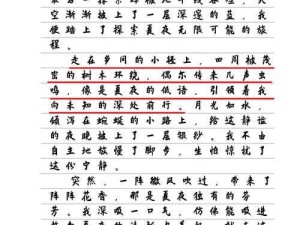 空渐渐被上了一层深邃的蓝，我
便踏上了探索夏夜无限可能的旅
程。
走在乡间的小径上，四周被茂
密的树木环绕，偶尔传来几声虫
鸣，像是夏夜的低语，引领着我
向未知的深处前行。月光如水，
倾泻在蜿蜒的小路上，给这静谧
的夜晚披上了一层银纱。我不由
自主地放慢了脚步，生怕惊扰了
这份宁静。
突然，一阵微风吹过，带来了
阵阵花香，那是夏夜独有的芬
芳。我深吸一口气，仿佛能吸进